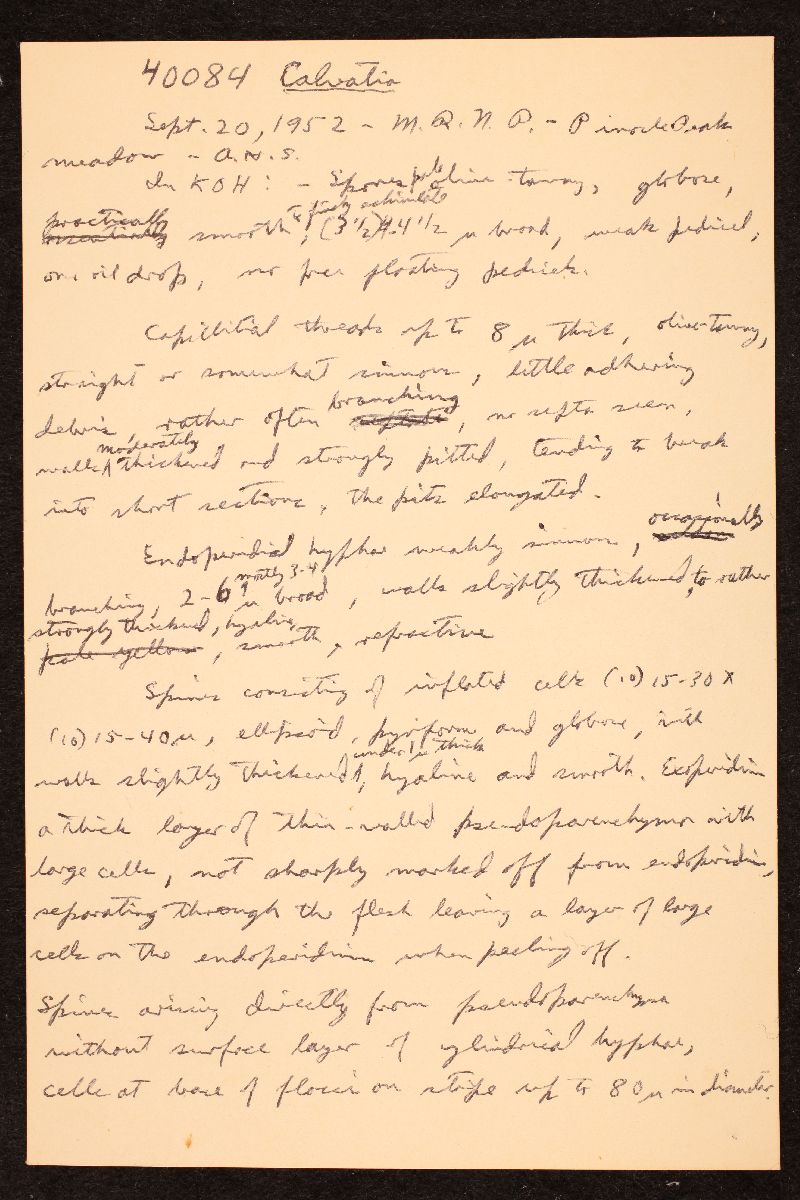 40084 Calvatia
Sept. 20, 1952 - M. R. N. P. - Pinnacle Peak
meadow - A.H.S.
In KOH: - Spores pale olive-tawny, globose,
practically essentially smooth to finely echinulate, (3 1/2) 4-4 1/2 µ broad, weak pedicel,
one oil drop, no free floating pedicels.
Capillitial threads up to 8 µ thick, olive-tawny,
straight or somewhat sinuous, little adhering
debris, rather often branching septate, no septa seen,
walls moderately thickened and strongly pitted, tending to break
into short sections, the pits elongated.
Endoperidial hyphae weakly sinuous, occasionally seldom
branching, 2-6 mostly 3-4 µ broad, walls slightly thickened, to rather
strongly thickened, hyaline,
pale yellow, smooth, refractive
Spines consisting of inflated cells (10) 15-30 X
(10) 15-40 µ, ellipsoid, pyriform and globose, with
walls slightly thickened under 1 µ thick, hyaline and smooth. Exoperidium
a thick layer of thin-walled pseudoparenchyma with
large cells, not sharply marked off from endoperidium,
separating through the flesh leaving a layer of large
cells on the endoperidium when peeling off.
Spines arising directly from pseudoparenchyma
without surface layer of cylindrical hyphae,
cells at base of flocci on stipe up to 80 µ in diameter.